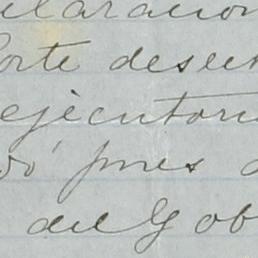 claracion
Corte desech
ejecutori
dó pues d
del Gob